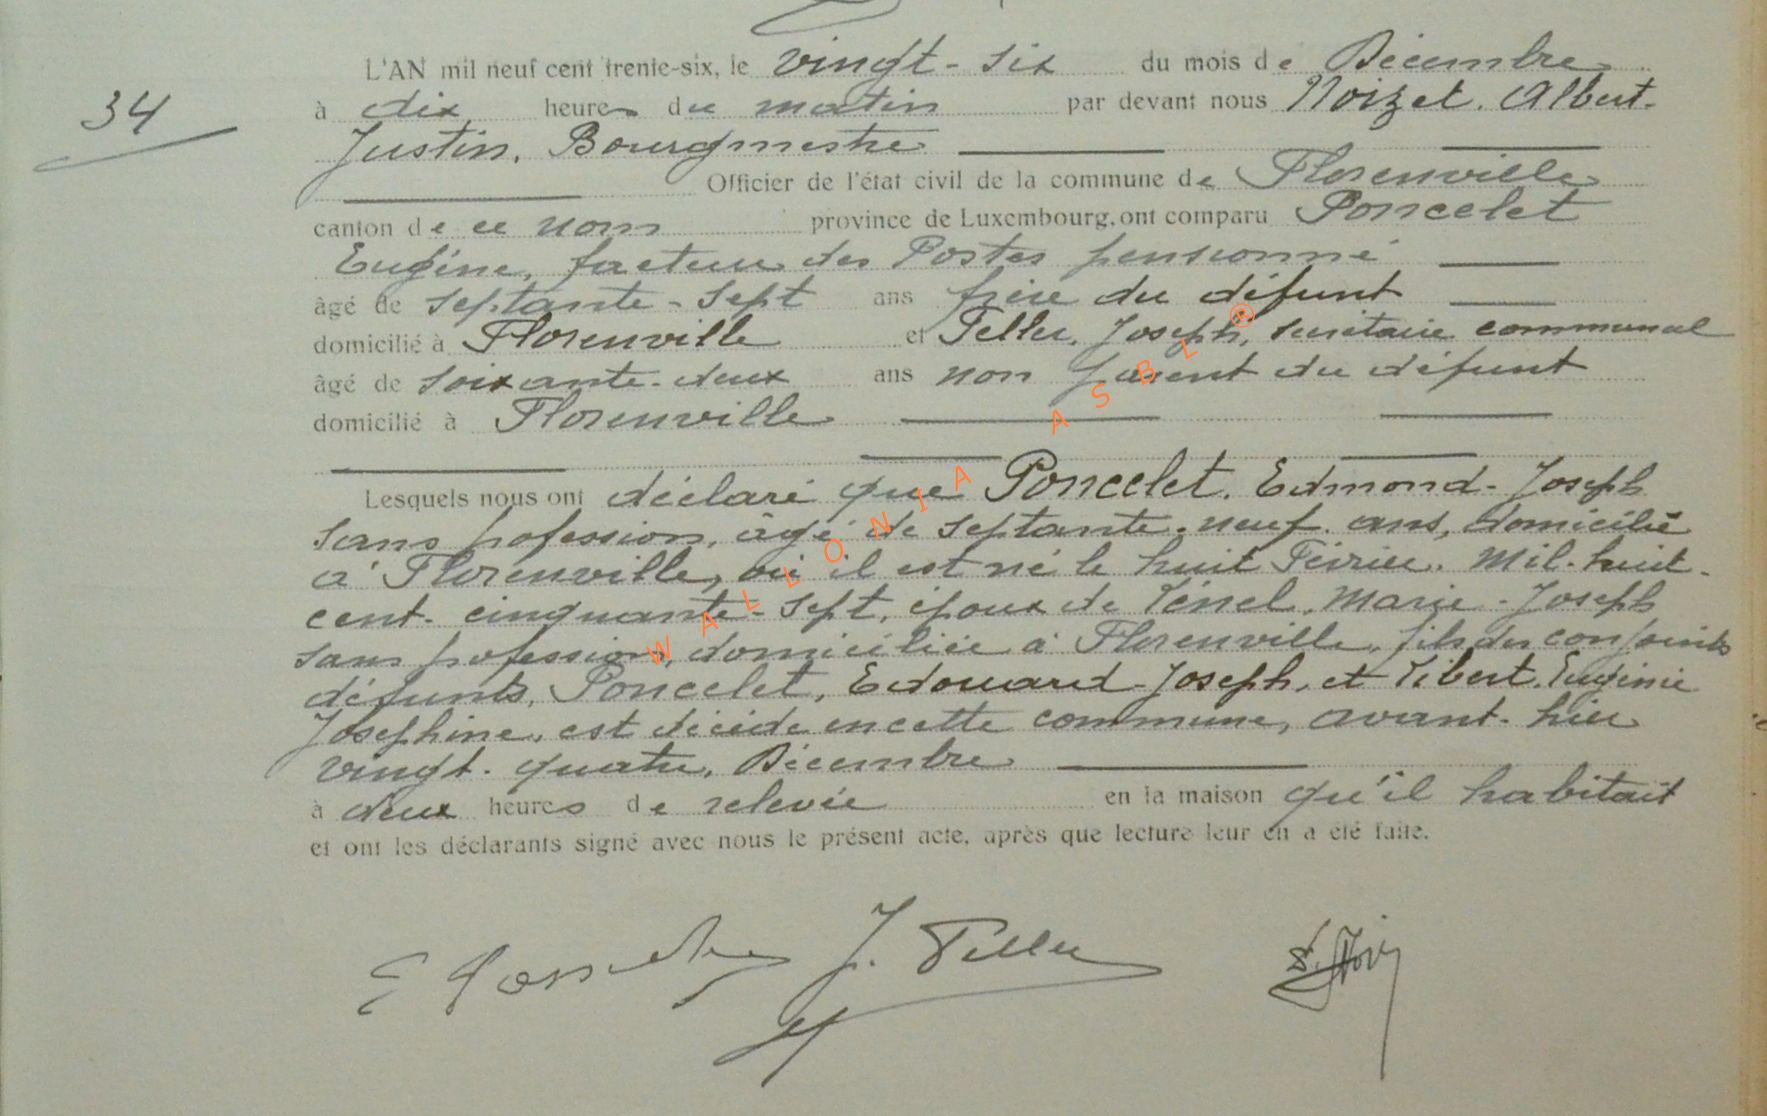 34
L'AN mil neuf cent trente-six, le vingt-six du mois de Décembre
à dix heures du matin par devant nous Noizet. Albert-
Justin, Bourgmestre
Officier de l'état civil de la commune de Florenville
canton de ce nom province de Luxembourg, ont comparu Poncelet
Eugène, facteur des Postes pensionné
âgé de septante-sept ans frère du défunt
domicilié à Florenville et Feller, Joseph, secrétaire communal
âgé de soixante-deux ans non parent du défunt
domicilié à Florenville
Lesquels nous ont déclaré que Poncelet, Edmond-Joseph
sans profession, âgé de septante-neuf ans, domicilié
à Florenville, où il est né le huit Février. Mil-huit-
cent-cinquante-sept, époux de Marie-Joseph
sans profession, domiciliée à Florenville, fils des conjoints
défunts, Poncelet, Edouard-Joseph, et Eugénie
Joséphine, est décédé en cette commune, avant-hier
vingt-quatre, Décembre
à deux heures de relevée en la maison qu'il habitait
et ont les déclarants signé avec nous le présent acte, après que lecture leur en a été faite.
E Poncelet J. Feller
WALLONIA ASBL ®